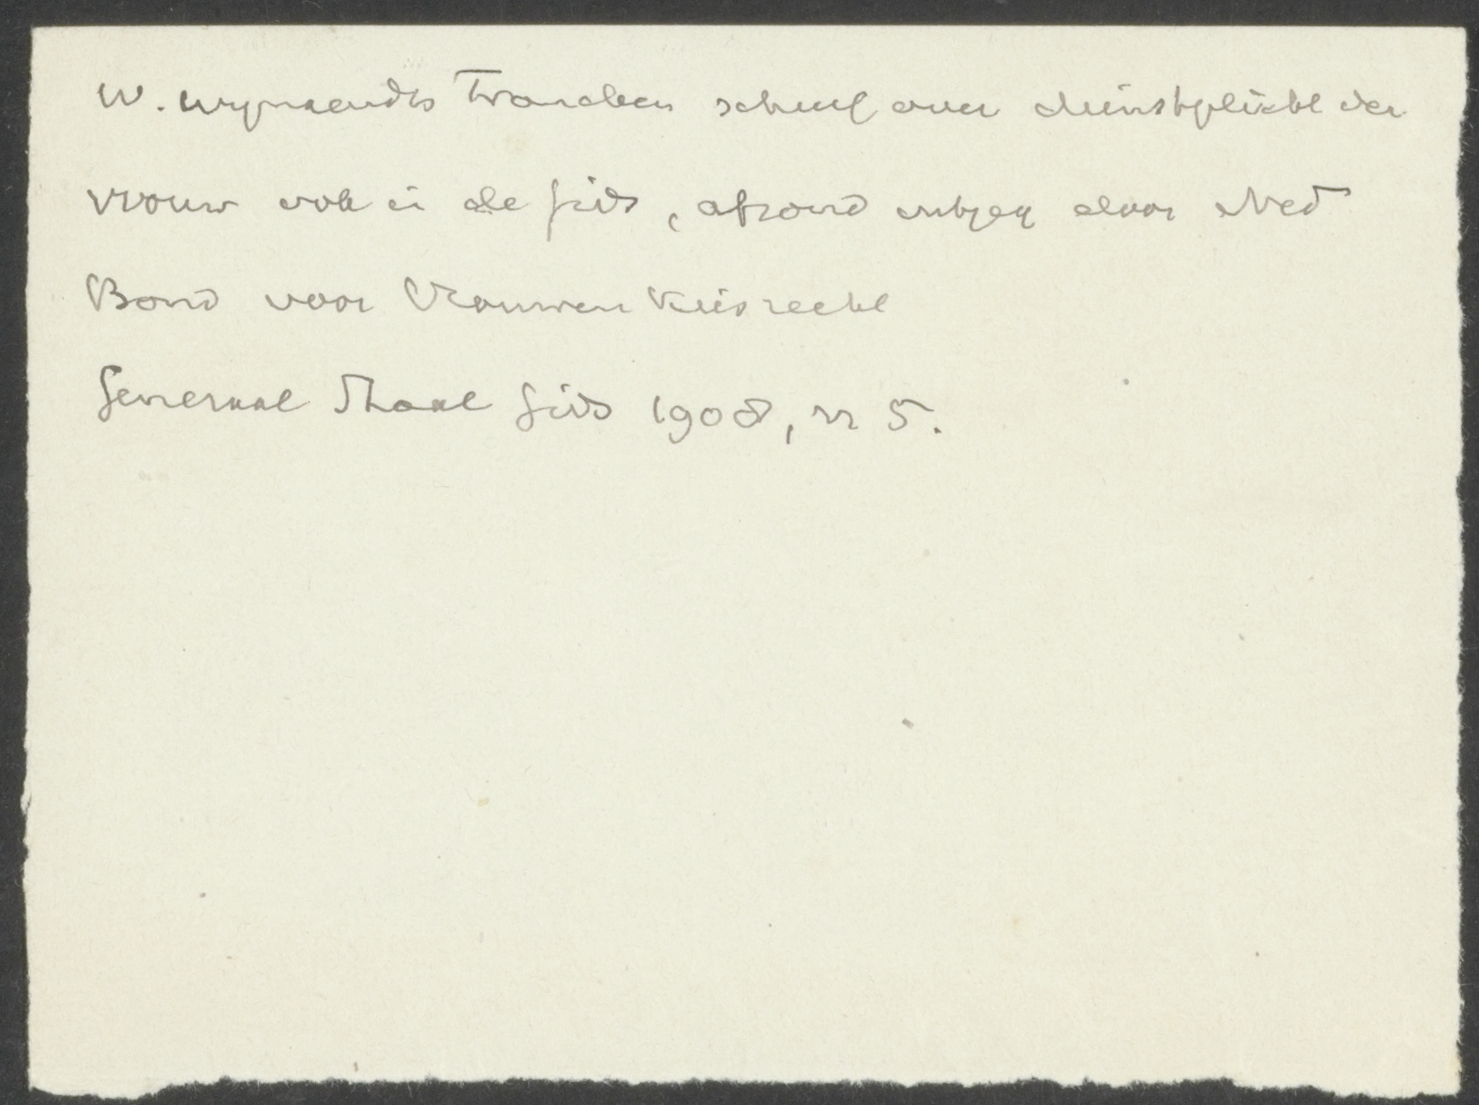 W. Wynaendts Francken schreef over dienstplicht der
vrouw ook in de Gids, afzond uitgeg door Ned
Bond voor Vrouwen Kiesrecht
Generaal Staal Gids 1908, nr 5.